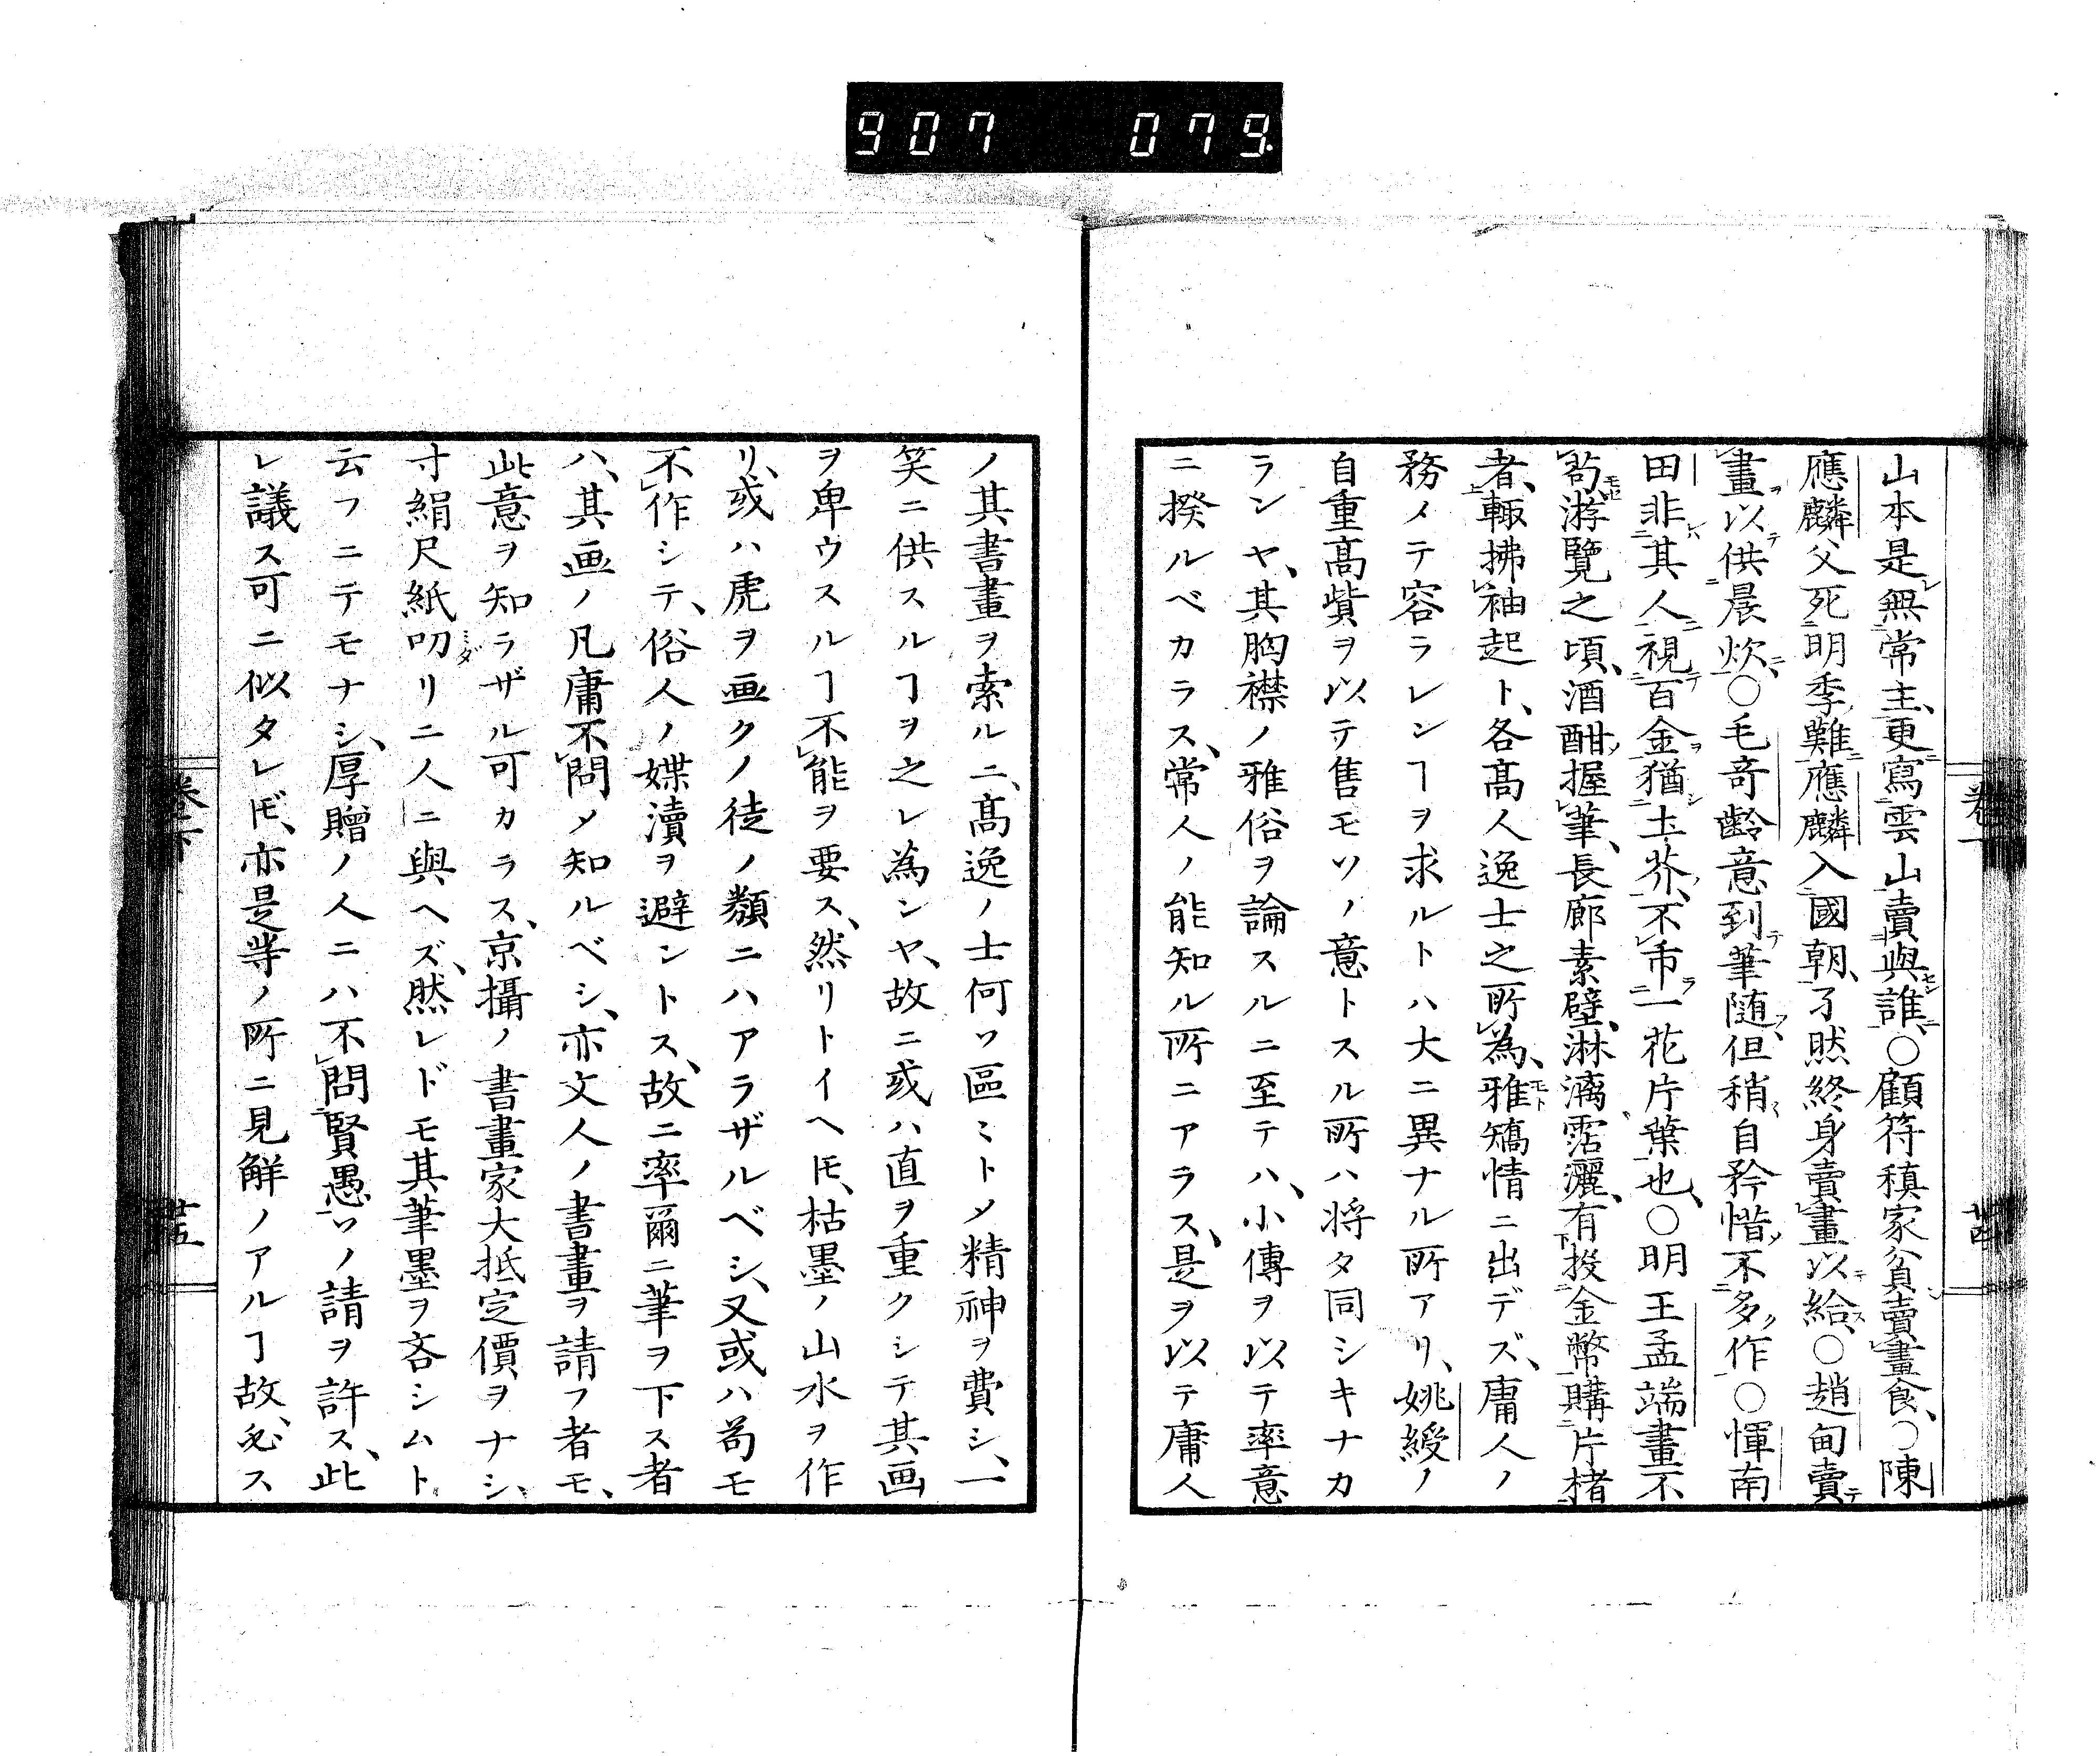 907 079.
山本是無常主、更寫雲山賣與誰、○顧符稹家貧賣畫食、○陳
應麟父死明季難應麟入國朝、孑然終身賣畫以給、○趙甸賣
畫以供晨炊、○毛竒齡意到筆随、但稍自矜惜、不多作○惲南
田非其人視百金猶土芥、不市一花片葉也、○明王孟端畫不
苟游覽之頃、酒酣握筆、長廊素壁、淋漓霑灑、有投金幣購片楮
者、輙拂袖起ト、各髙人逸士之所為、雅矯情ニ出デズ、庸人ノ
務メテ容ラレンヿヲ求ルトハ大ニ異ナル所アリ、姚綬ノ
自重髙貲ヲ以テ售モソノ意トスル所ハ将タ同シキナカ
ランヤ、其胸襟ノ雅俗ヲ論スルニ至テハ、小傳ヲ以テ率意
ニ揆ルベカラス、常人ノ能知ル所ニアラス、是ヲ以テ庸人
卷下
廿五
ノ其書畫ヲ索ルニ、髙逸ノ士何ソ區ミトメ精神ヲ費シ、一
笑ニ供スルヿヲ之レ為ンヤ、故ニ或ハ直ヲ重クシテ其画
ヲ卑ウスルヿ不能ヲ要ス、然リトイヘ𪜈、枯墨ノ山水ヲ作
リ、或ハ虎ヲ画クノ徒ノ類ニハアラザルベシ、又或ハ苟モ
不作シテ、俗人ノ媟瀆ヲ避ントス、故ニ率爾ニ筆ヲ下ス者
ハ、其画ノ凡庸不問メ知ルベシ、亦文人ノ書畫ヲ請フ者モ、
此意ヲ知ラザル可カラス、京攝ノ書畫家大抵定價ヲナシ、
寸絹尺紙叨リニ人ニ與ヘズ、然レドモ其筆墨ヲ吝シムト
云フニテモナシ、厚贈ノ人ニハ不問賢愚ソノ請ヲ許ス、此
レ議ス可ニ似タレ𪜈、亦是等ノ所ニ見解ノアルヿ故、必ス